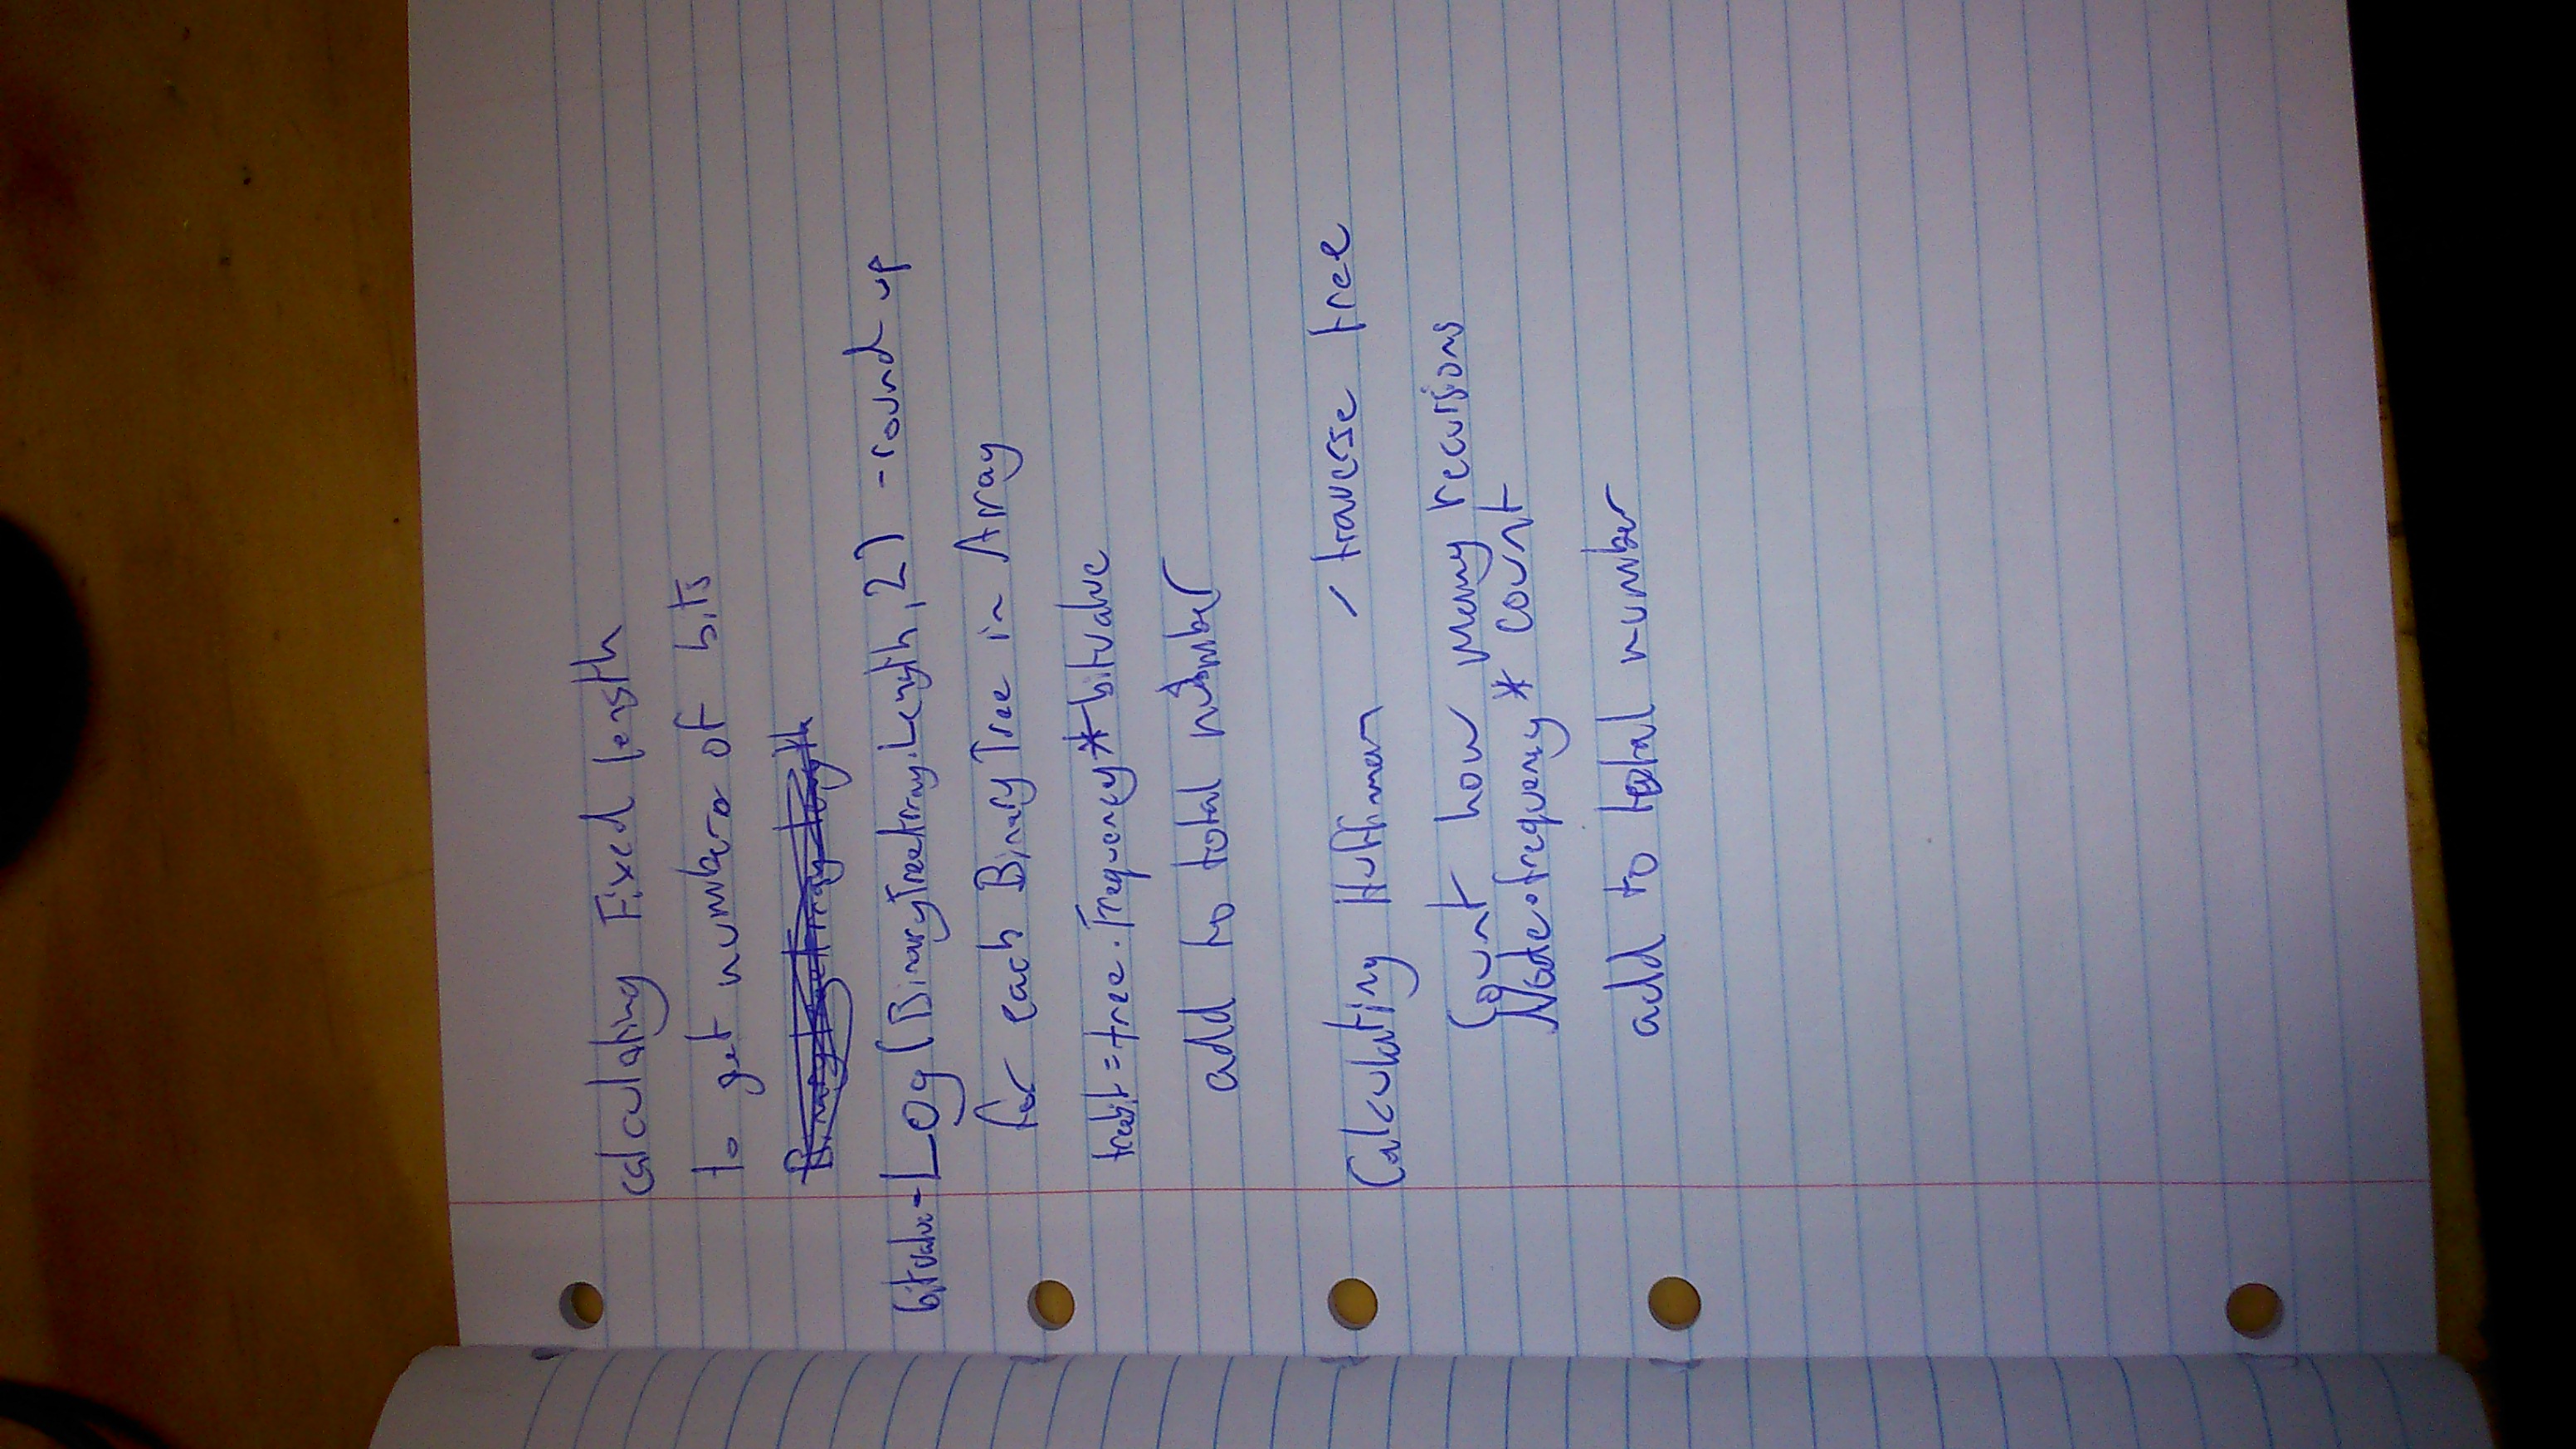 Calculating Fixed length
to get number of bits
BinaryTreeArray length
bitvalue = Log(BinaryTreeArray.Length, 2) - round up
for each BinaryTree in Array
treebit = tree.Frequency * bitvalue
add to total number
Calculating Huffman - traverse tree
Count how many recursions
Node.frequency * count
add to total number